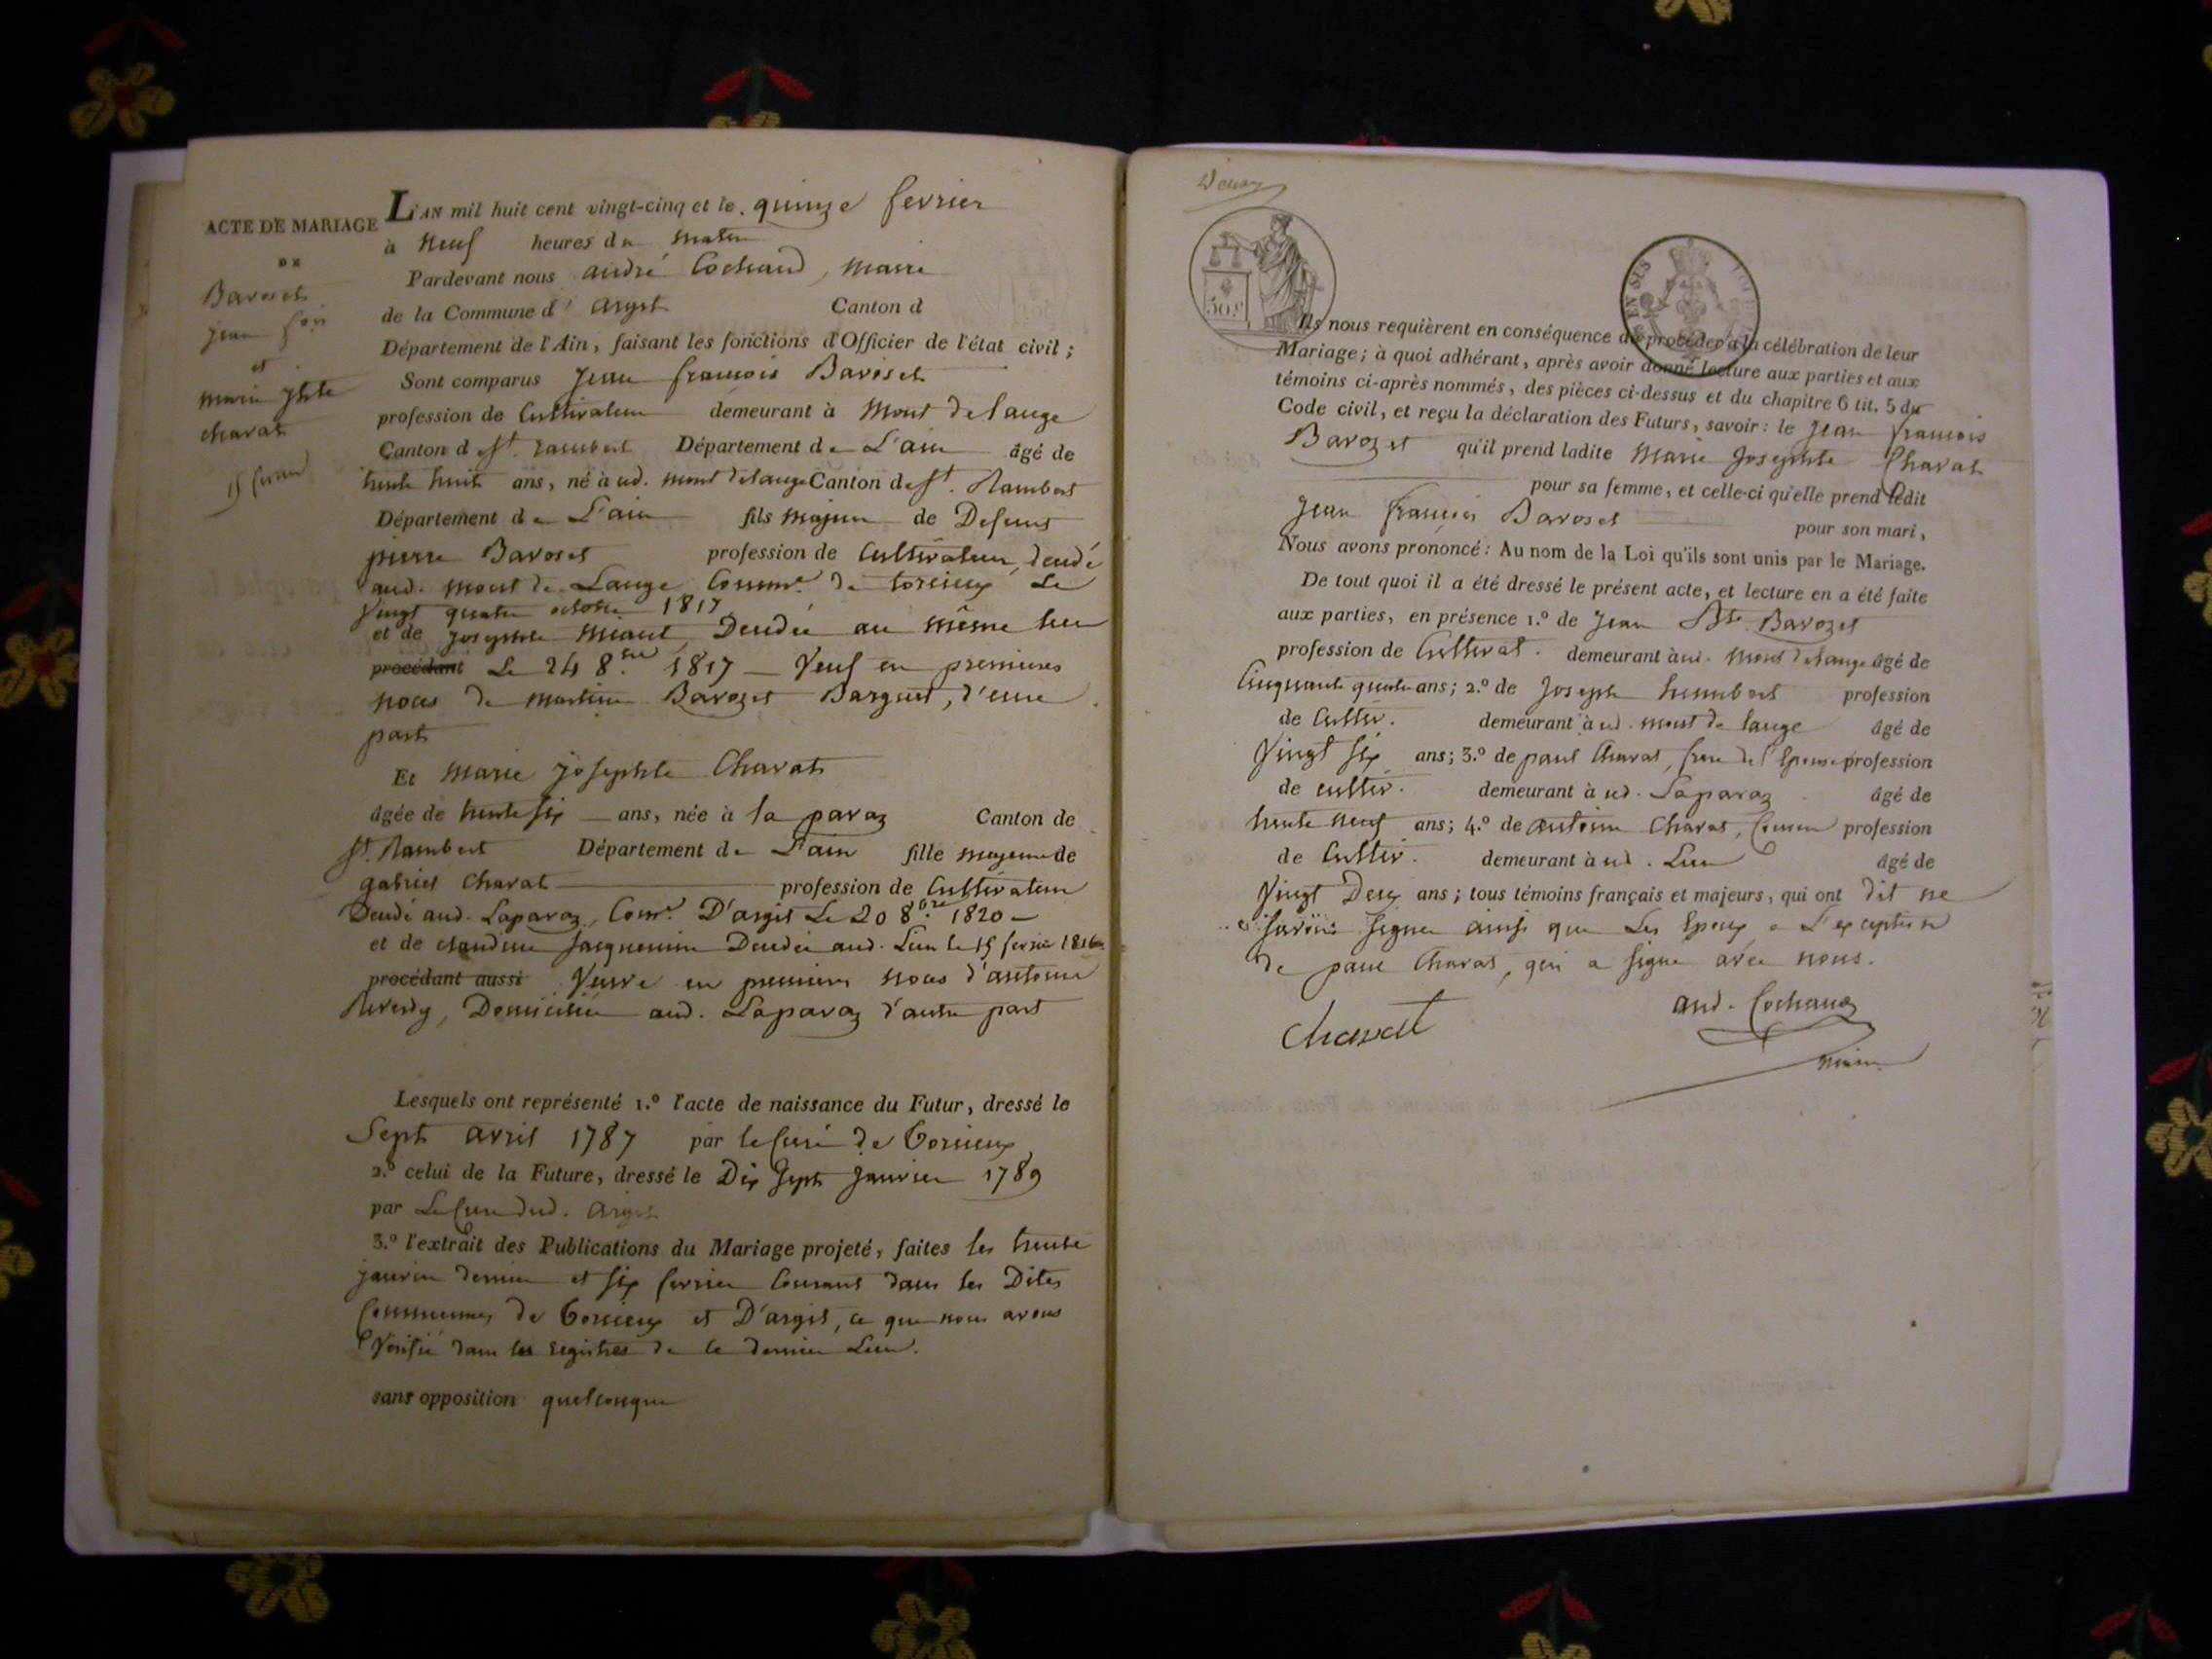 ACTE DE MARIAGE
DE
Baroset
jean fois
et
marie jphte
charat
15 fevrier
L'AN mil huit cent vingt-cinq et le quinze fevrier
à neuf heures du matin
Pardevant nous andré Cochand, Maire
de la Commune d' argit Canton d
Département de l'Ain, faisant les fonctions d'Officier de l'état civil ;
Sont comparus Jean francois Baroset
profession de Cultivateur demeurant à Mont de lange
Canton de St. rambert Département de L'ain âgé de
trente huit ans, né à ud. mont de lange Canton de St. Rambert
Département de L'ain fils majeur de Defunt
pierre Baroset profession de Cultivateur, décédé
aud. mont de Lange Comm.e de torcieux Le
vingt quatre octobre 1817
et de josephte Miant Decedée au même lieu
procédant Le 24 8.bre 1817 — Veuf en premieres
noces de Baroset d'une
part
Et Marie josephte Charat
âgée de trente six ans, née à la paraz Canton de
St. Rambert Département de L'ain fille majeure de
gabriel Charat profession de Cultivateur
Decedé aud. Laparaz, Com.e D'argis Le 20 8.bre 1820 —
et de claudine jacquemin Decedée aud. Lieu le 15 fevrier 1816
procédant aussi Veuve en premieres noces d'antoine
Reverdy, Domiciliée aud. Laparaz d'autre part
Lesquels ont représenté 1.º l'acte de naissance du Futur, dressé le
Sept avril 1787 par le Curé de Torcieux
2.º celui de la Future, dressé le Dix Sept Janvier 1789
par Le Cure dud. argis
3.º l'extrait des Publications du Mariage projeté, faites les trente
janvier dernier et six fevrier Courant dans les Dites
Communes de Torcieux et D'argis, ce que nous avons
Verifié dans les registres de ce dernier Lieu.
sans opposition quelconque
30 c.
EN SUS
Ils nous requièrent en conséquence de procéder à la célébration de leur
Mariage ; à quoi adhérant, après avoir donné lecture aux parties et aux
témoins ci-après nommés, des pièces ci-dessus et du chapitre 6 tit. 5 du
Code civil, et reçu la déclaration des Futurs, savoir : le Jean francois
Barozet qu'il prend ladite Marie Josephte Charat
pour sa femme, et celle-ci qu'elle prend ledit
Jean francois Baroset pour son mari,
Nous avons prononcé : Au nom de la Loi qu'ils sont unis par le Mariage.
De tout quoi il a été dressé le présent acte, et lecture en a été faite
aux parties, en présence 1.º de Jean Bte. Barozet
profession de Cultivat. demeurant à ud. Mont de lange âgé de
Cinquante quatre ans ; 2.º de Joseph humbert profession
de Cultiv. demeurant à ud. mont de lange âgé de
Vingt six ans ; 3.º de paul Charat, frere de l'Epouse profession
de cultiv. demeurant à ud. Laparaz âgé de
trente neuf ans ; 4.º de antoine Charat, Cousin profession
de Cultiv. demeurant à ud. Lieu âgé de
Vingt Deux ans ; tous témoins français et majeurs, qui ont dit ne
savoir signer ainsi que Les Epoux a L'exception
de paul Charat, qui a signé avec nous.
Charat
and. Cochand
maire